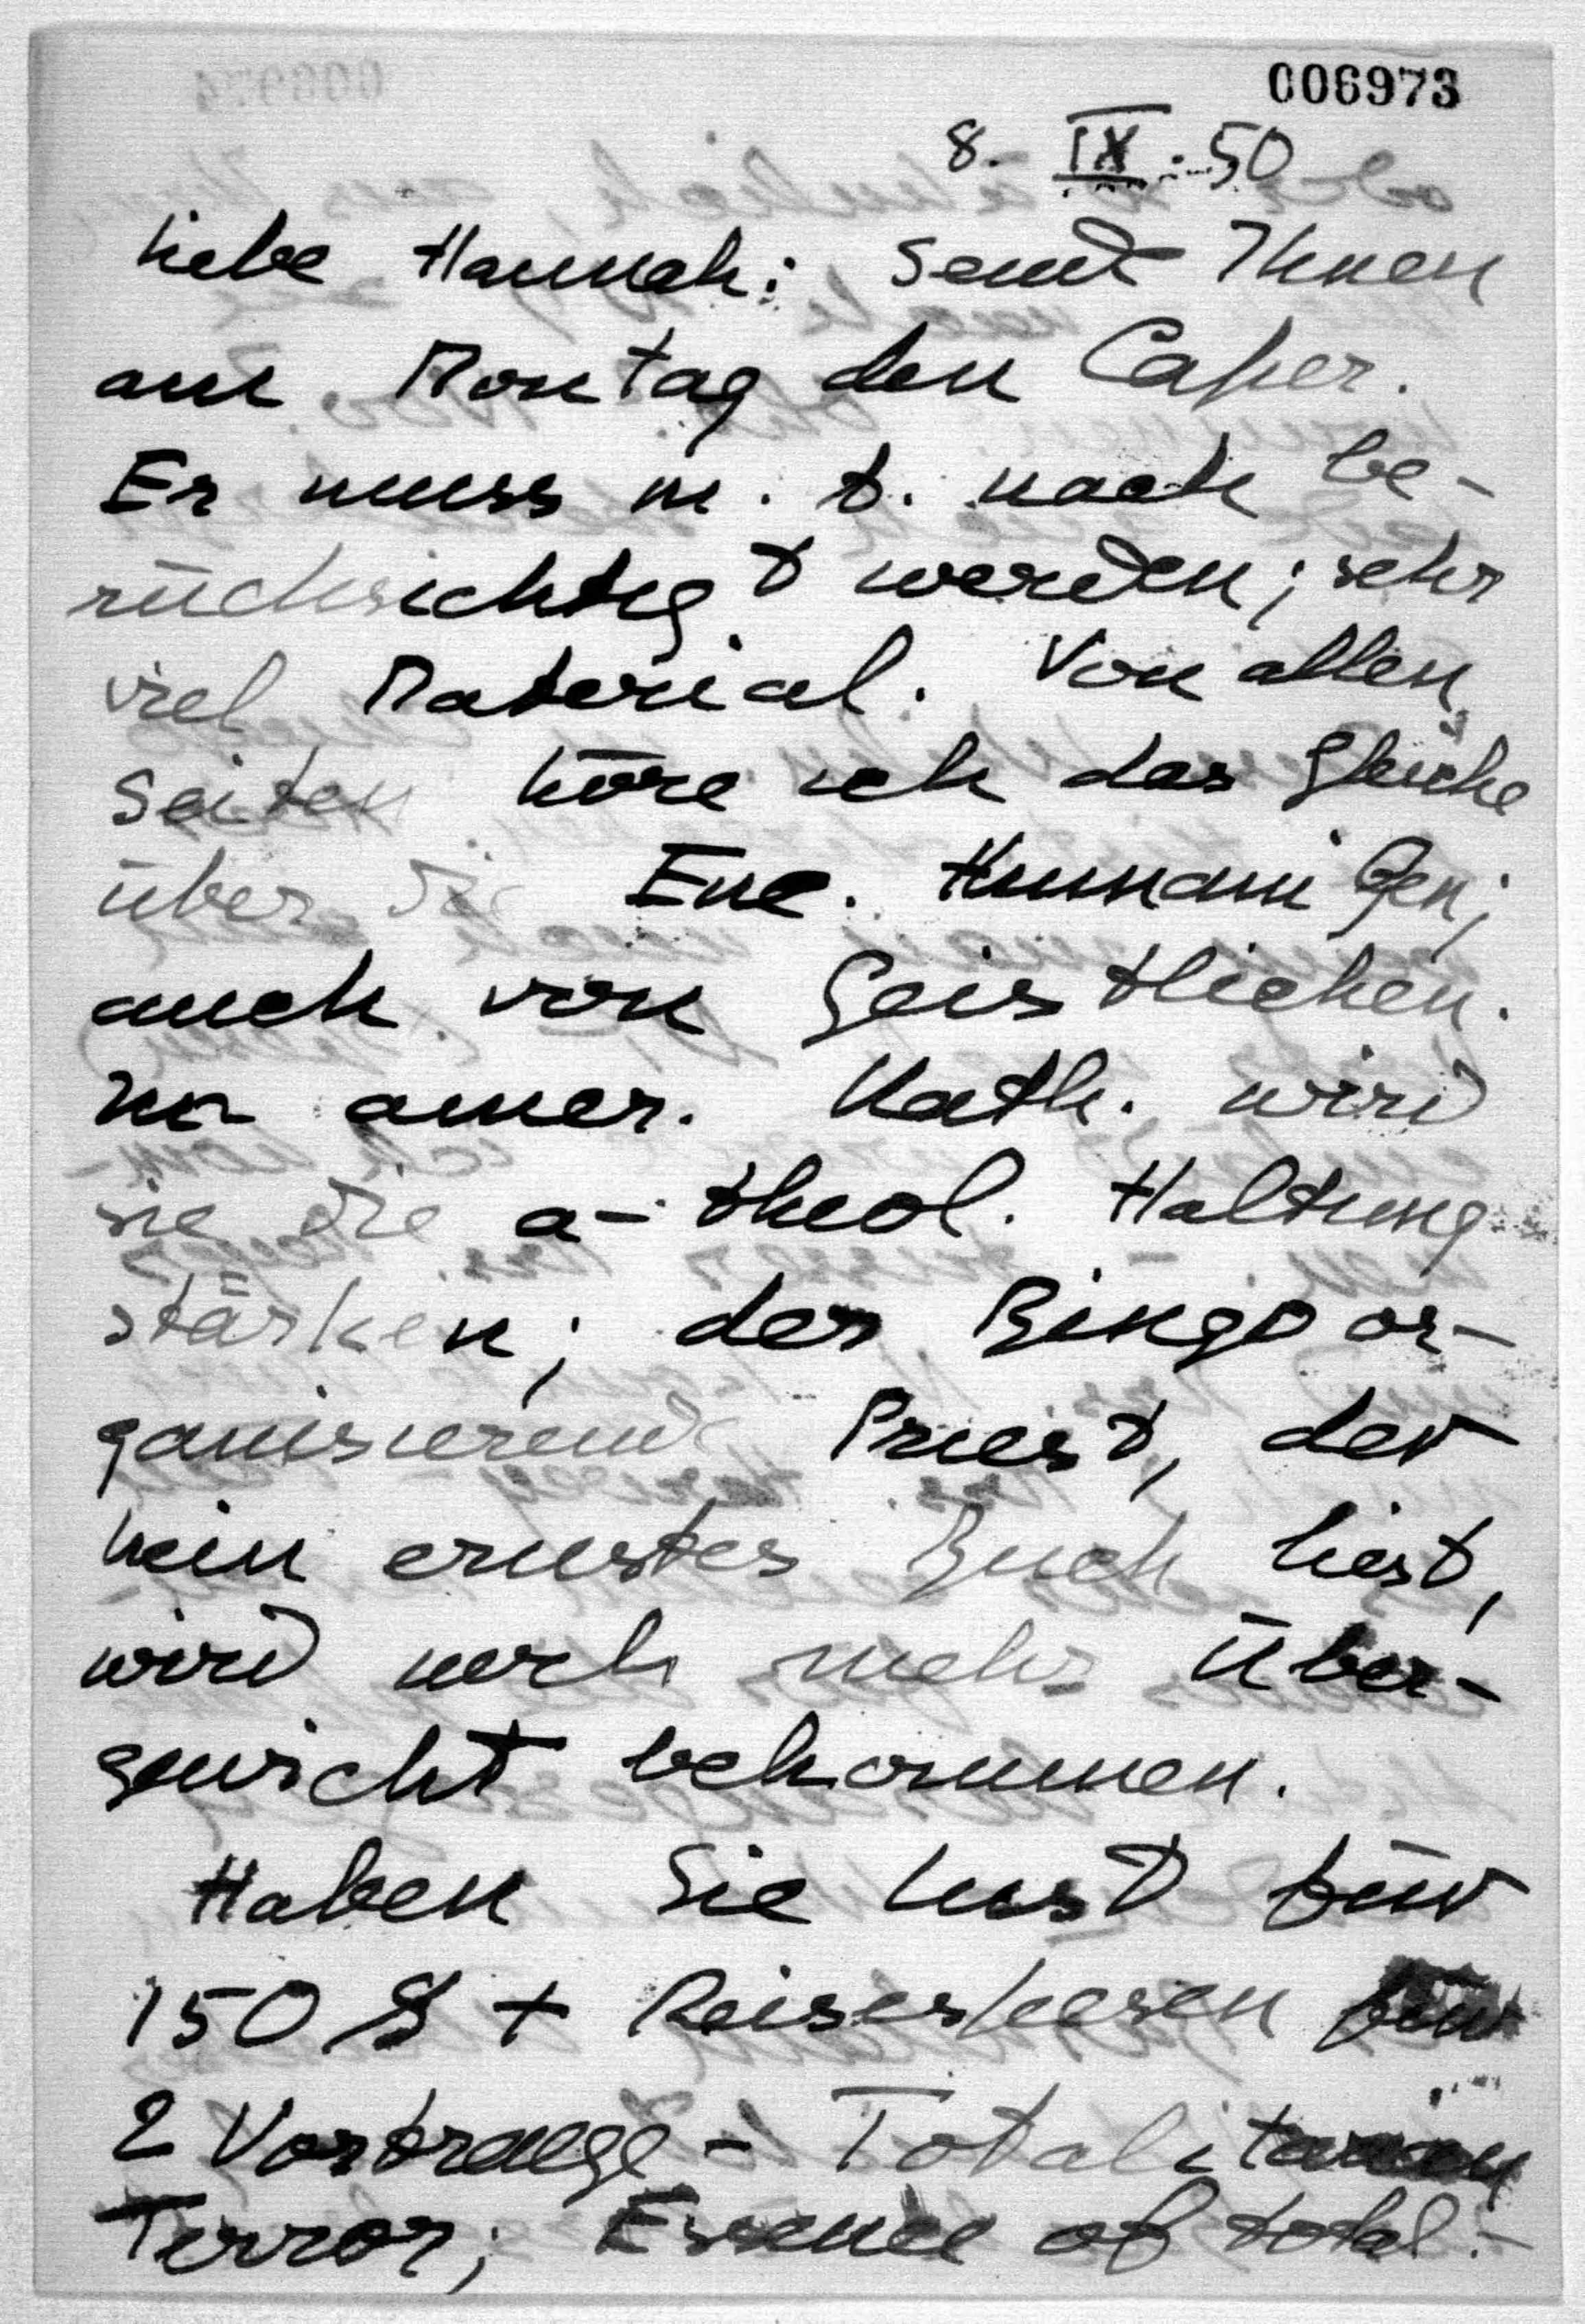 006973
8. IX. 50
Liebe Hannah: Send Ihnen
am Montag den Caper.
Er muss m. E. noch be-
rücksichtigt werden; sehr
viel Material. Von allen
Seiten höre ich das Gleiche
über die Enc. Humani Gen;
auch von Geistlichen.
Im amer. Kath. wird
sie die a-theol. Haltung
stärken; der Bingo or-
ganisierende Priest, der
kein ernstes Buch liest,
wird noch mehr Über-
gewicht bekommen.
Haben Sie Lust für
150 $ + Reisespesen für
2 Vortraege - Totalitarian
Terror; Essence of total.-